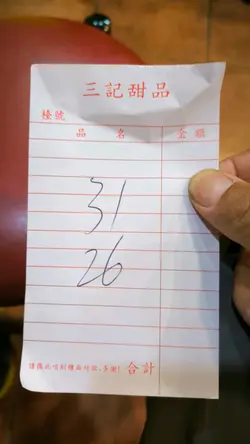 三記甜品
檯號
品 名 金 額
31
26
請攜此咭到櫃面付款,多謝! 合計